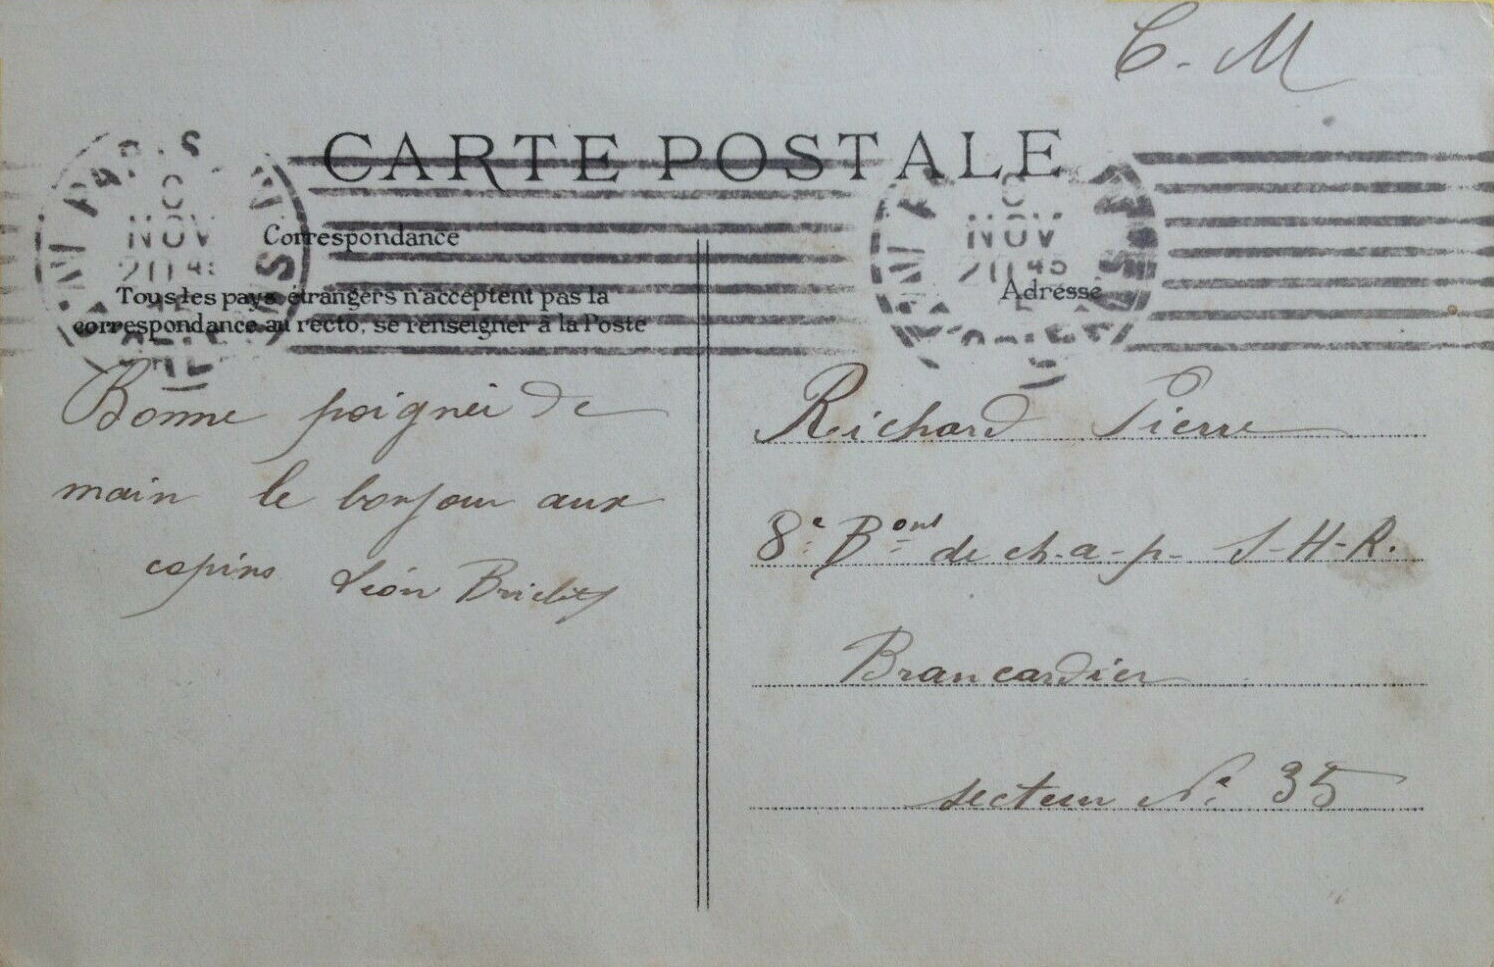 C. M
CARTE POSTALE
PARIS
NOV
20 45
Correspondance
Tous les pays étrangers n'acceptent pas la
correspondance au recto, se renseigner à la Poste
NOV
20 45
Adresse
Bonne poignée de
main le bonjour aux
copins Léon
Richard Pierre
8e Bont de ch-a-p- S-H-R.
Brancardier
secteur No 35